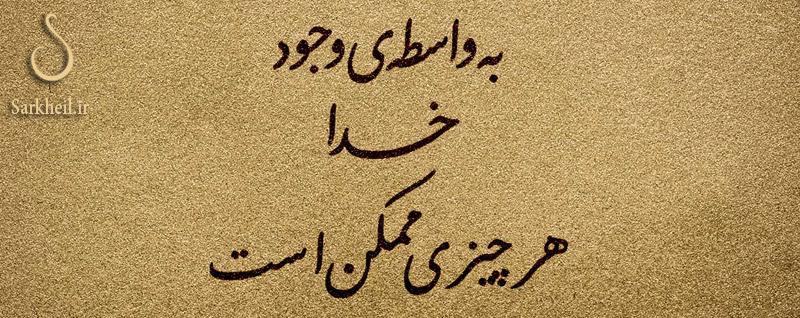 به واسطه‌ی وجود
خدا
هر چیزی ممکن است
Sarkheil.ir